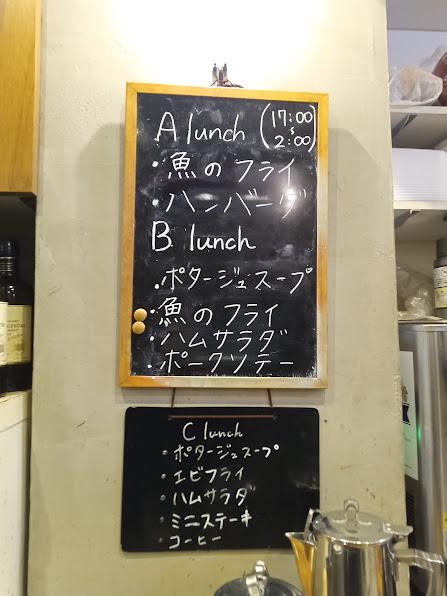 A lunch (17:00
〜
2:00)
・魚のフライ
・ハンバーグ
B lunch
・ポタージュスープ
・魚のフライ
・ハムサラダ
・ポークソテー
C lunch
・ポタージュスープ
・エビフライ
・ハムサラダ
・ミニステーキ
・コーヒー